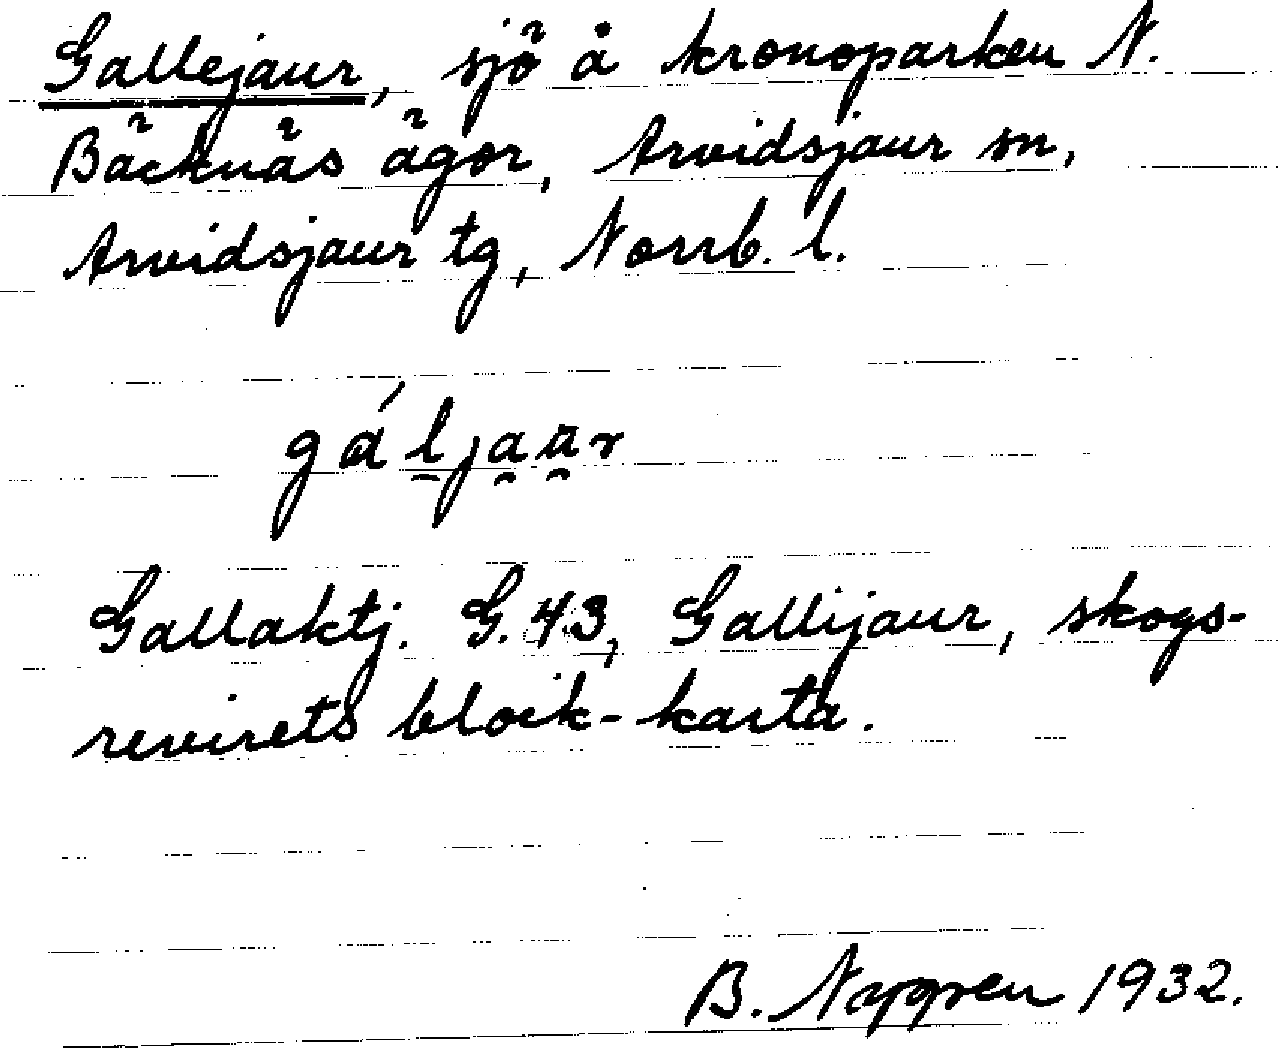 Gallejaur, sjö å kronoparken N.
Bäcknäs ägor, Arvidsjaur sn,
Arvidsjaur tg, Norrb. l.
gáljaur
Gallaktj. G. 43, Gallijaur, skogs-
revirets block-karta.
B. 1932.